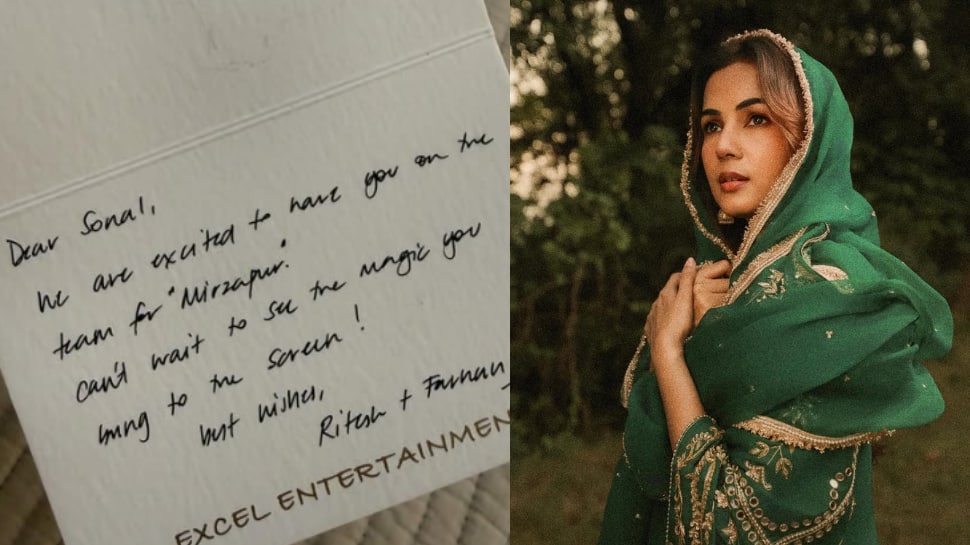 Dear Sonal,
We are excited to have you on the
team for "Mirzapur."
can't wait to see the magic you
bring to the screen!
best wishes,
Ritesh + Farhan
EXCEL ENTERTAINMEN